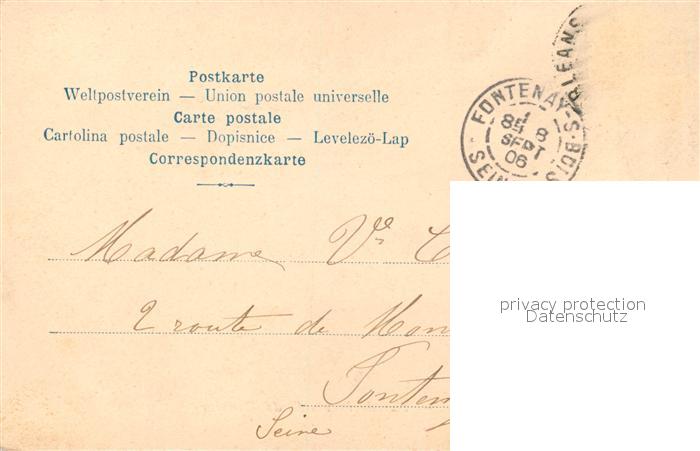 Postkarte
Weltpostverein — Union postale universelle
Carte postale
Cartolina postale — Dopisnice — Levelező-Lap
Correspondenzkarte
LEANS
FONTENAY-S-BOIS
8
SEPT
06
SEIN
Madame Vve C
2 route de Mon
Fonten
Seine
privacy protection
Datenschutz